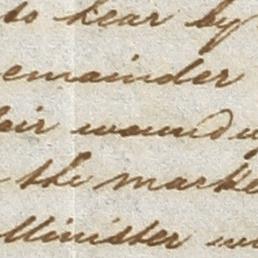 to hear by
emainder
eir wound
the marke
Minister w